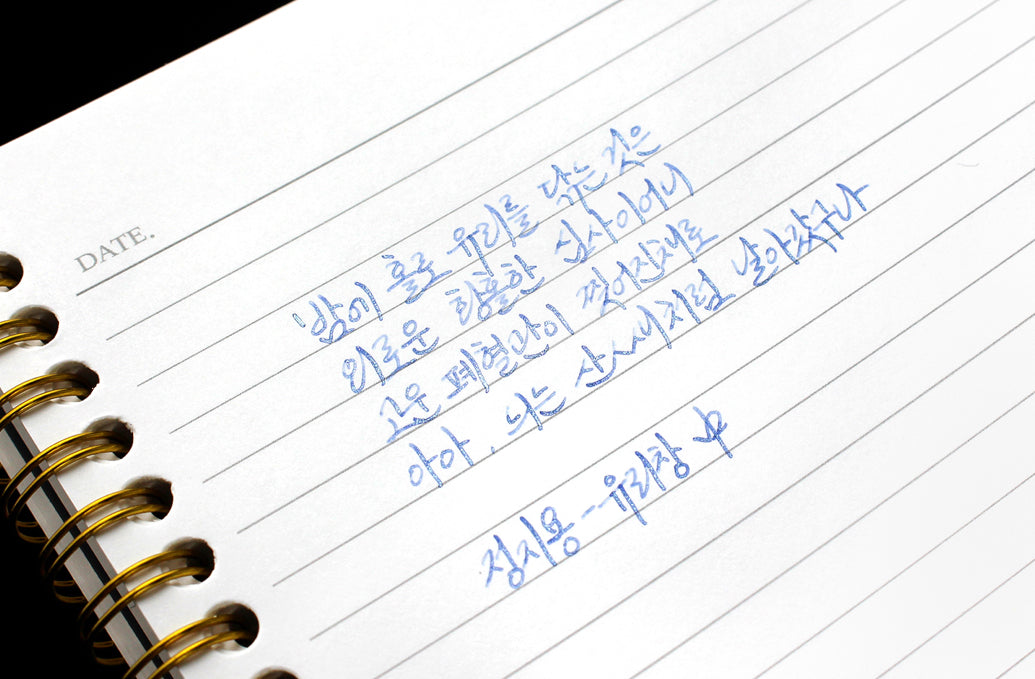 DATE.
밤에 홀로 유리를 닦는 것은
외로운 황홀한 심사이어니
고운 폐혈관이 찢어진채로
아아, 너는 산새처럼 날아갔구나
정지용 - 유리창 中